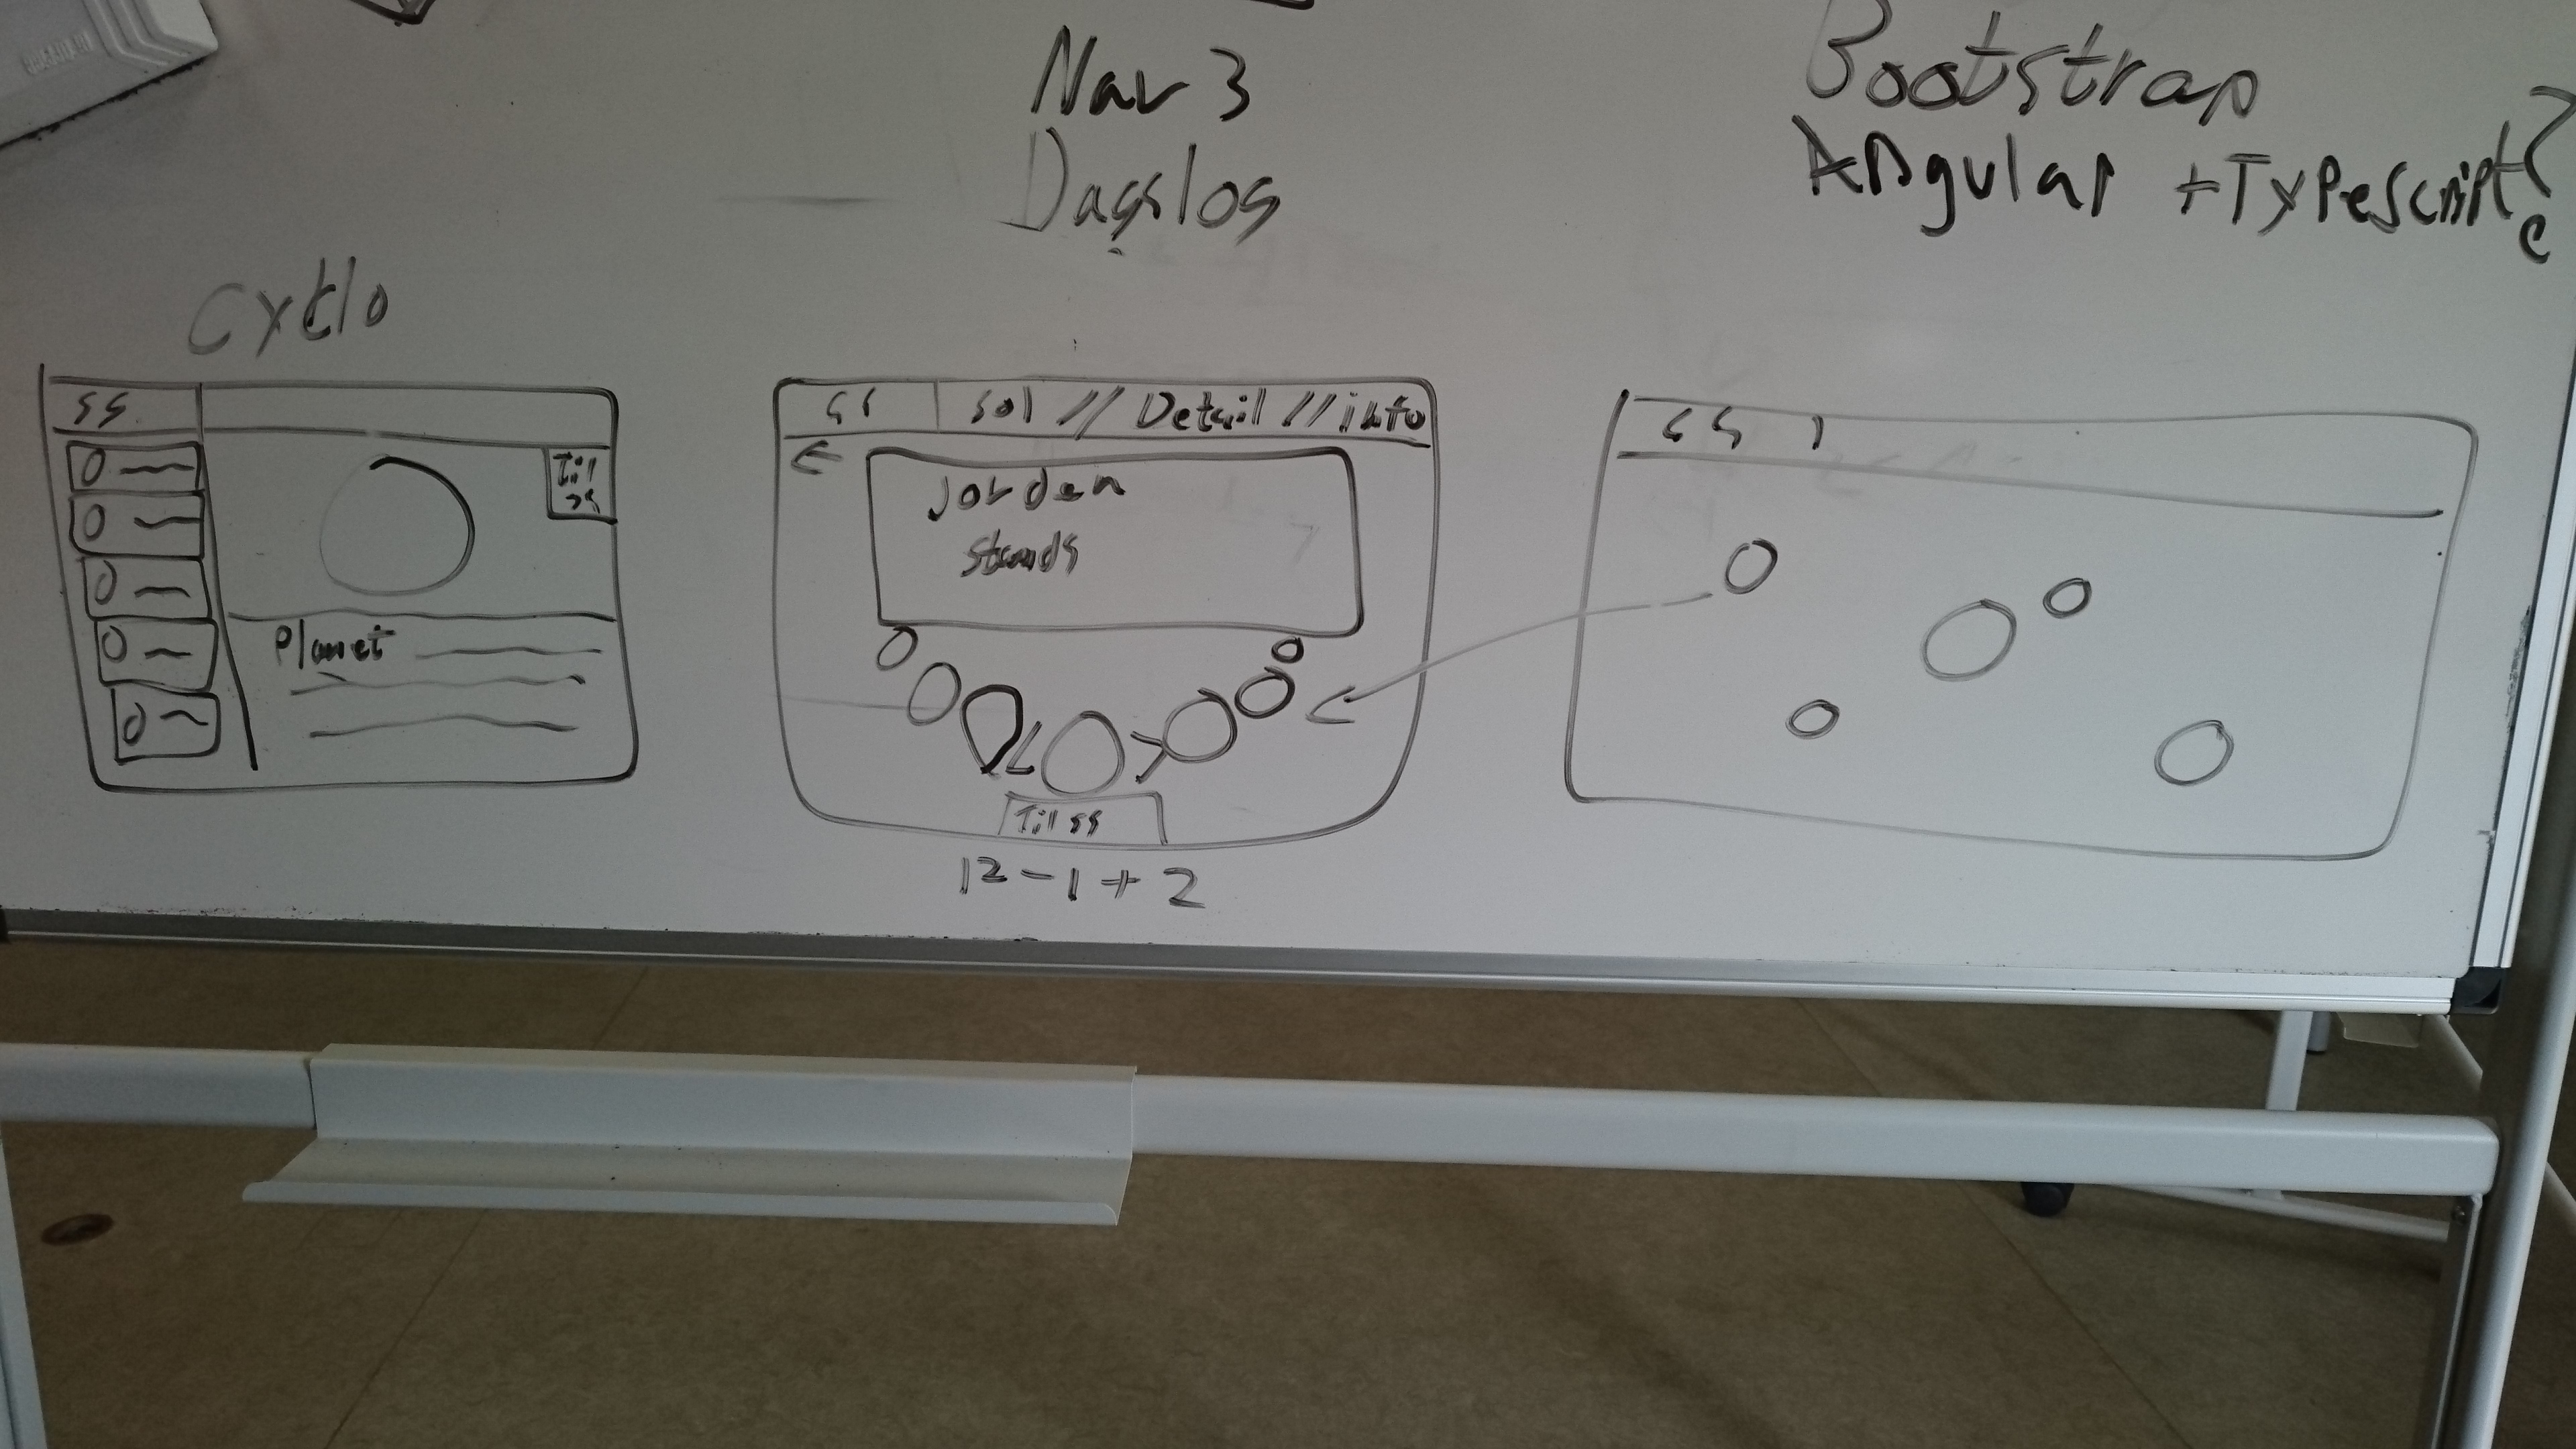 Nav 3
Dagslog
Bootstrap
Angular + TypeScript ?
Cyklo
SS
Til
SS
Planet
SS
Sol // Detail // info
Jorden
Til SS
12 - 1 + 2
SS